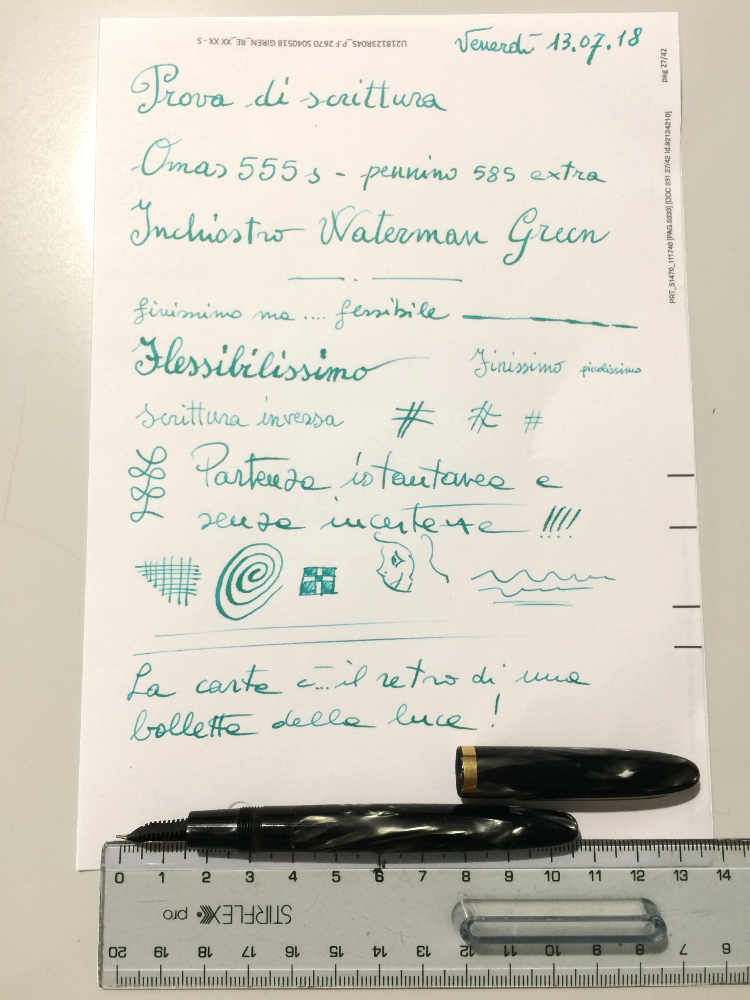 U218123R04S_P.F 2670 S040518 GIREN_RE_XX XX - S
Venerdì 13.07.18
pag 27/42
Prova di scrittura
Omas 555 s - pennino 585 extra
Inchiostro Waterman Green
finissimo ma .... flessibile
Flessibilissimo
Finissimo piccolissimo
Scrittura inversa # # #
Partenza istantanea e
senza incertezze !!!!
La carta è... il retro di una
bolletta della luce!
0 1 2 3 4 5 6 7 8 9 10 11 12 13 14
STIRFLEX pro
20 19 18 17 16 15 14 13 12 11 10 9 8 7 6